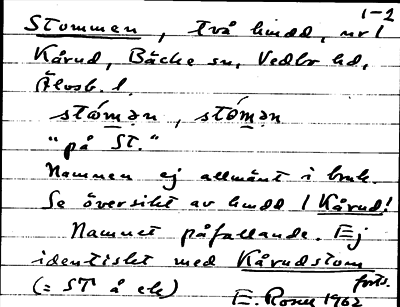 1-2
Stommen, två hmdd, nr 1
Kårud, Bäcke sn, Vedbo hd,
Älvsb. l.
stómən, stómən
"på St."
Namnen ej allmänt i bruk.
Se översikt av hmdd l Kårud!
Namnet påfallande. Ej
identiskt med Kårudstom
(= ST å ek) forts.
E. Rosell 1962